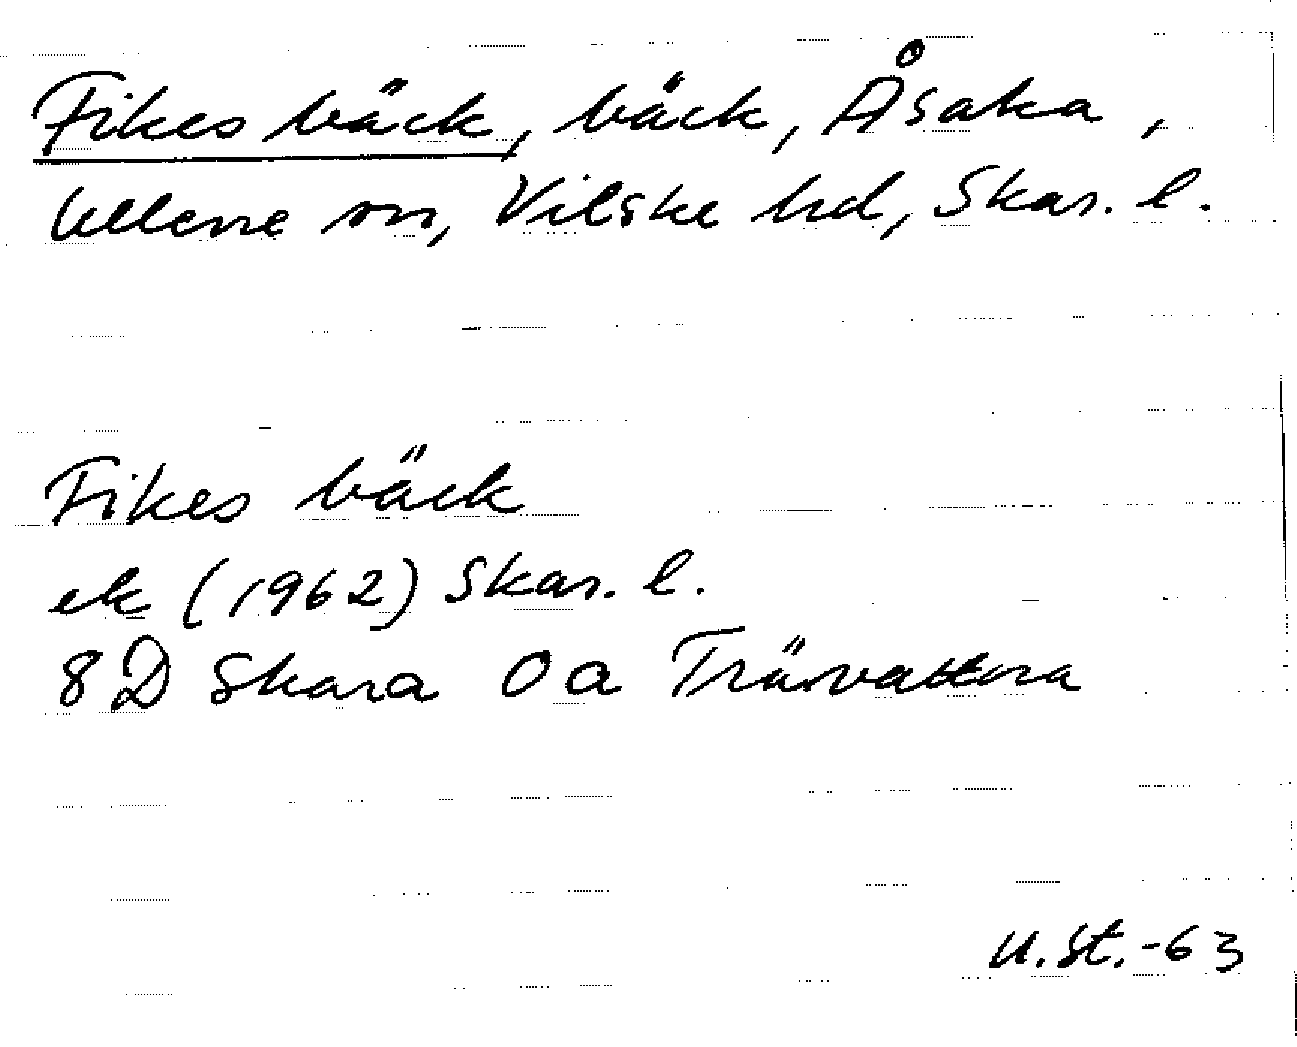 Fikes bäck, bäck, Åsaka,
Ullene sn, Vilske hd, Skar. l.
Fikes bäck
ek (1962) Skar. l.
8D Skara 0a Trävattna
U.St.-63